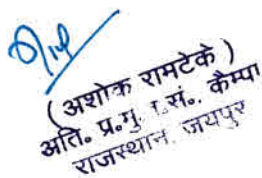 (अशोक रामटेके)
अति. प्र.मु. .सं., कैम्पा
राजस्थान, जयपुर